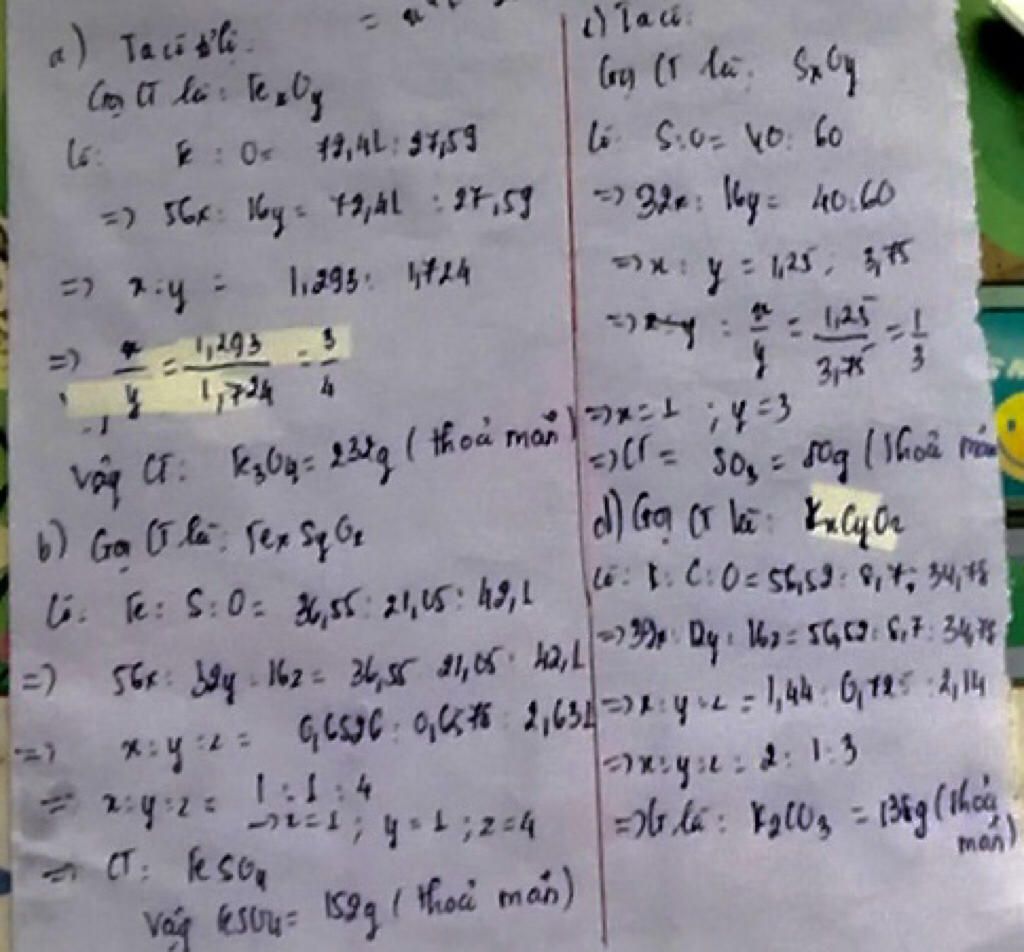 a) Ta có tỉ lệ:
Gọi CT là: FexOy
Có: Fe : O = 72,41 : 27,59
=> 56x : 16y = 72,41 : 27,59
=> x : y = 1,293 : 1,724
=> x/y = 1,293/1,724 = 3/4
Vậy CT: Fe3O4 = 232g (thoả mãn)
b) Gọi CT là: FexSyOz
Có: Fe : S : O = 36,55 : 21,05 : 42,1
=> 56x : 32y : 16z = 36,55 21,05 : 42,1
=> x : y : z = 0,6526 : 0,6578 : 2,631
=> x : y : z = 1 : 1 : 4
=> x = 1 ; y = 1 ; z = 4
=> CT: FeSO4
Vậy FeSO4 = 152g (thoả mãn)
c) Ta có:
Gọi CT là: SxOy
Có: S : O = 40 : 60
=> 32x : 16y = 40:60
=> x : y = 1,25 : 3,75
=> x/y = 1,25/3,75 = 1/3
=> x = 1 ; y = 3
=> CT = SO3 = 80g (thoả mãn
d) Gọi CT là: KxCyOz
Có: K : C : O = 56,52 : 8,7 : 34,78
=> 39x : 12y : 16z = 56,52 : 8,7 : 34,78
=> x : y : z = 1,44 : 0,725 : 2,14
=> x : y : z = 2 : 1 : 3
=> CT là: K2CO3 = 138g (thoả
mãn)